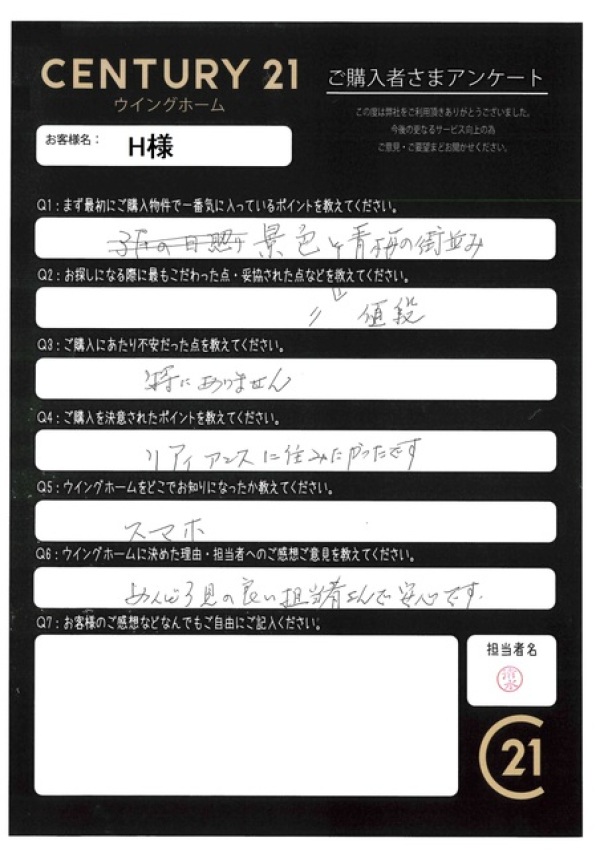 CENTURY 21
ウイングホーム
ご購入者さまアンケート
この度は弊社をご利用頂きありがとうございました。
今後の更なるサービス向上の為
ご意見・ご要望まどお聞かせください。
お客様名: H様
Q1:まず最初にご購入物件で一番気に入っているポイントを教えてください。
の日照り 景色と青梅の街並み
Q2:お探しになる際に最もこだわった点・妥協された点などを教えてください。
〃 値段
Q3:ご購入にあたり不安だった点を教えてください。
特にありません
Q4:ご購入を決意されたポイントを教えてください。
リアイアンスに住みたかったです
Q5:ウイングホームをどこでお知りになったか教えてください。
スマホ
Q6:ウイングホームに決めた理由・担当者へのご感想ご意見を教えてください。
めんどう見の良い担当者さんで安心です.
Q7:お客様のご感想などなんでもご自由にご記入ください。
担当者名
清水
C21